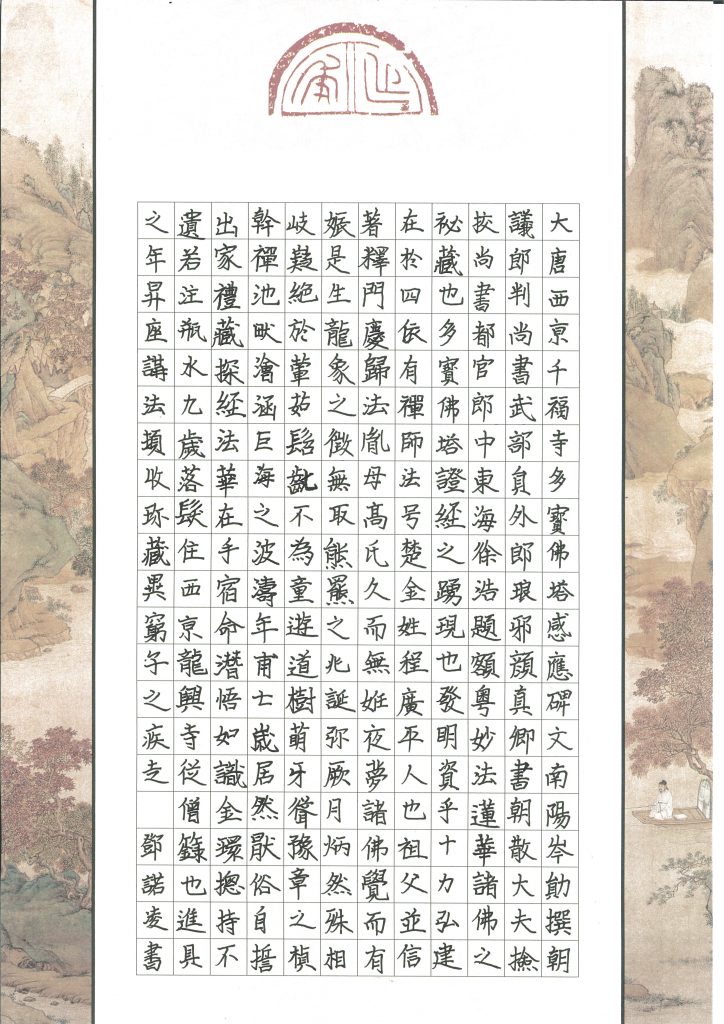 大唐西京千福寺多寶佛塔感應碑文南陽岑勛撰朝
議郎判尚書武部員外郎琅邪顏真卿書朝散大夫撿
挍尚書都官郎中東海徐浩題額粵妙法蓮華諸佛之
祕藏也多寶佛塔證經之踴現也發明資乎十力弘建
在於四依有禪師法号楚金姓程廣平人也祖父並信
著釋門慶歸法胤母高氏久而無姙夜夢諸佛覺而有
娠是生龍象之徵無取熊羆之兆誕弥厥月炳然殊相
岐嶷絕於葷茹髫齔不為童遊道樹萌牙聳豫章之楨
幹禪池畎澮涵巨海之波濤年甫七歲居然猒俗自誓
出家禮藏探經法華在手宿命潛悟如識金環揔持不
遺若注瓶水九歲落髮住西京龍興寺從僧籙也進具
之年昇座講法頓收珍藏異窮子之疾走 鄧諾凌書